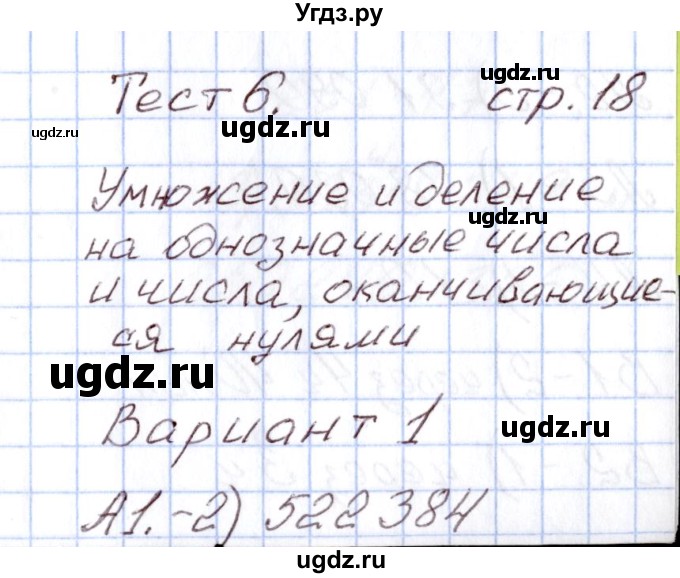 Угдз.ру
Тест 6. стр. 18
ugdz.ru
ugdz.ru
ugdz.ru
Умножение и деление
ugdz.ru
на однозначные числа
и числа, оканчивающие-
ся нулями
ugdz.ru
Вариант 1
ugdz.ru
А1.-2) 522 384
ugdz.ru
ugdz.ru
ugdz.ru